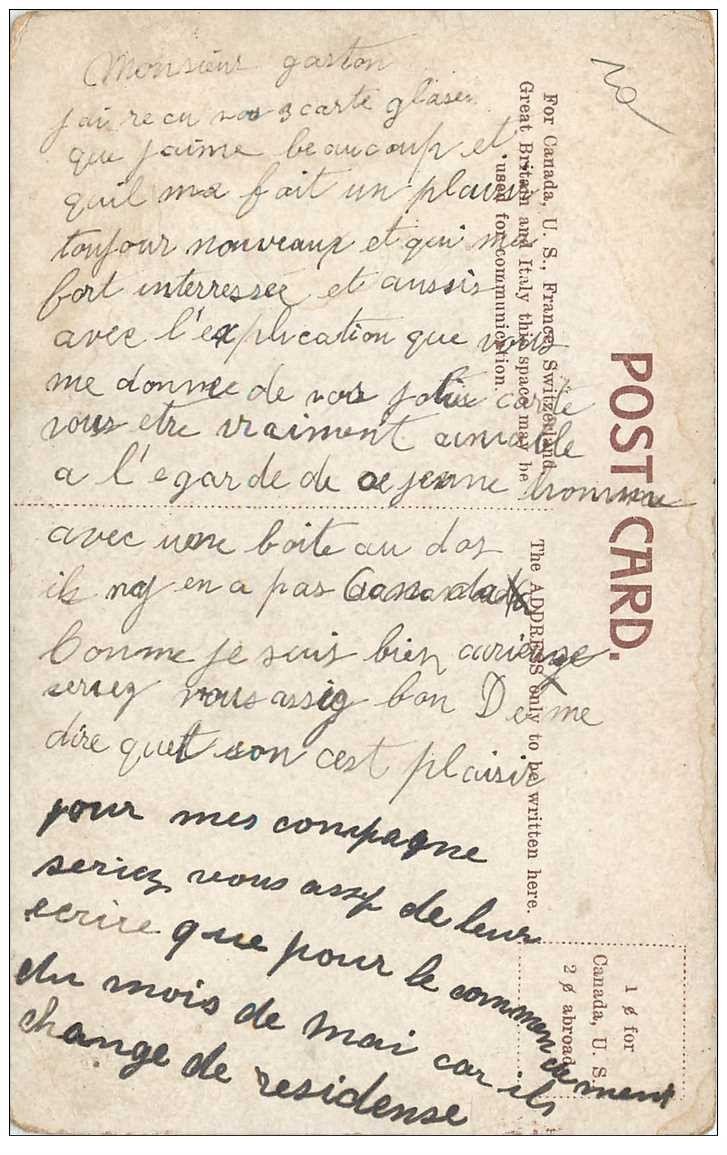 Monsieur gaston
jai recu vos 3 carte glaser
que jaime beaucoup et
quil me fait un plaisir
toujour nouveaux et qui mes
fort interressee et aussis
avec l'explication que vous
me donnee de vos jolie carte
vous etre vraiment aimable
a l'egarde de ce jeune homme
avec une boite au dos
ils ny en a pas Canada
Comme je suis bien curieuse
seriez vous assez bon De me
dire quet son cest plaisir
pour mes compagne
seriez vous assy de leur
ecrire que pour le commencement
du mois de mai car ils
change de residense
POST CARD.
For Canada, U. S., France, Switzerland,
Great Britain and Italy this space may be
used for communication.
The ADDRESS only to be written here.
1 ¢ for
Canada, U. S.
2 ¢ abroad